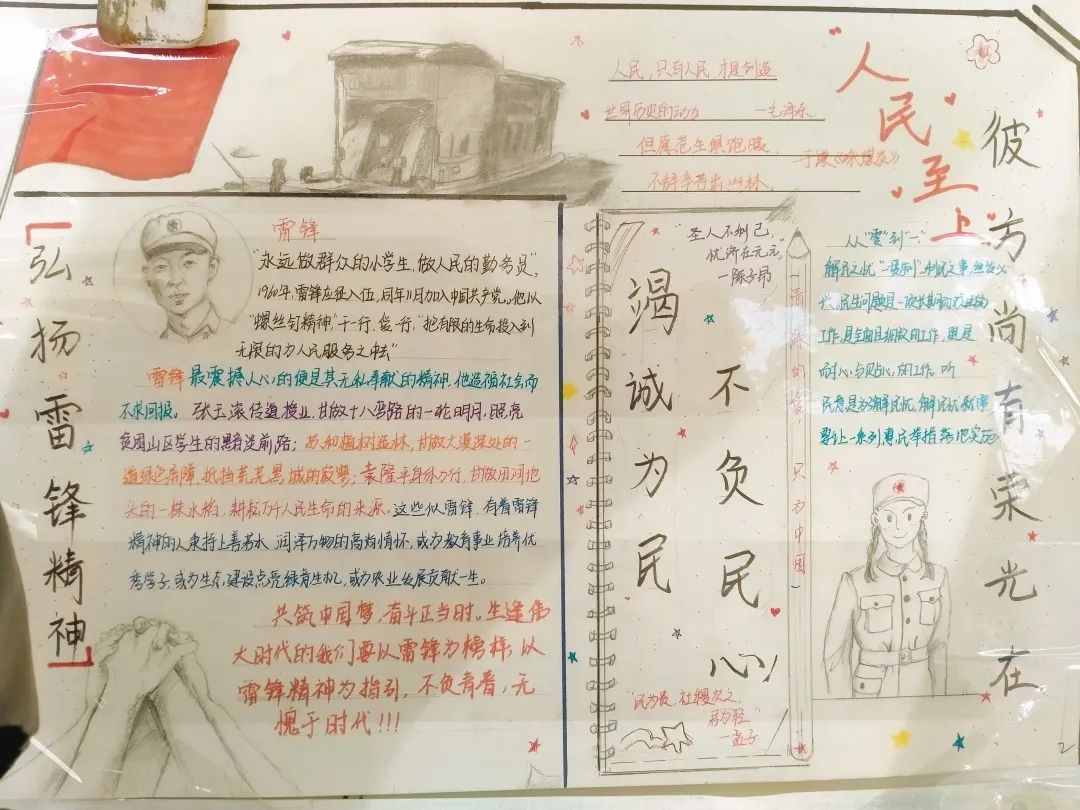 人民，只有人民，才是创造
世界历史的动力 —毛泽东
但愿苍生俱饱暖，
不辞辛苦出山林。
于谦《咏煤炭》
"人民至上"
彼方尚有荣光在
「弘扬雷锋精神」
雷锋
"永远做群众的小学生，做人民的勤务员"，
1960年，雷锋应征入伍，同年11月加入中国共产党。他以
"螺丝钉精神"，干一行，爱一行，"把有限的生命投入到
无限的为人民服务之中去"
雷锋最震撼人心的便是其无私奉献的精神，他造福社会而
不求回报。张玉滚传道授业，甘做十八弯路的一轮明月，照亮
贫困山区学生的黑暗前路；苏和植树造林，甘做大漠深处的一
道绿色屏障，抵挡荒芜黑城的寂寥；袁隆平身体力行，甘做田间地
头的一株水稻，耕耘万千人民生命的来源。这些似雷锋、有着雷锋
精神的人秉持上善若水，润泽万物的高尚情怀，或为教育事业培养优
秀学子，或为生态建设点亮绿青生机，或为农业发展贡献一生。
共筑中国梦，奋斗正当时。生逢伟
大时代的我们要以雷锋为榜样；以
雷锋精神为指引，不负青春，无
愧于时代!!!
"圣人不利己，
忧济在元元"
—陈子昂
竭诚为民
不负民心
"民为贵，社稷次之，
君为轻"
—孟子
只为中国
从"零"到"一"
解民之忧
民生问题是一项长期而
工作，是全面且细致的工作，更是
耐心与贴心的工作。听
民意是为解民忧，解民忧
要让一系列惠民举措落地实施
2